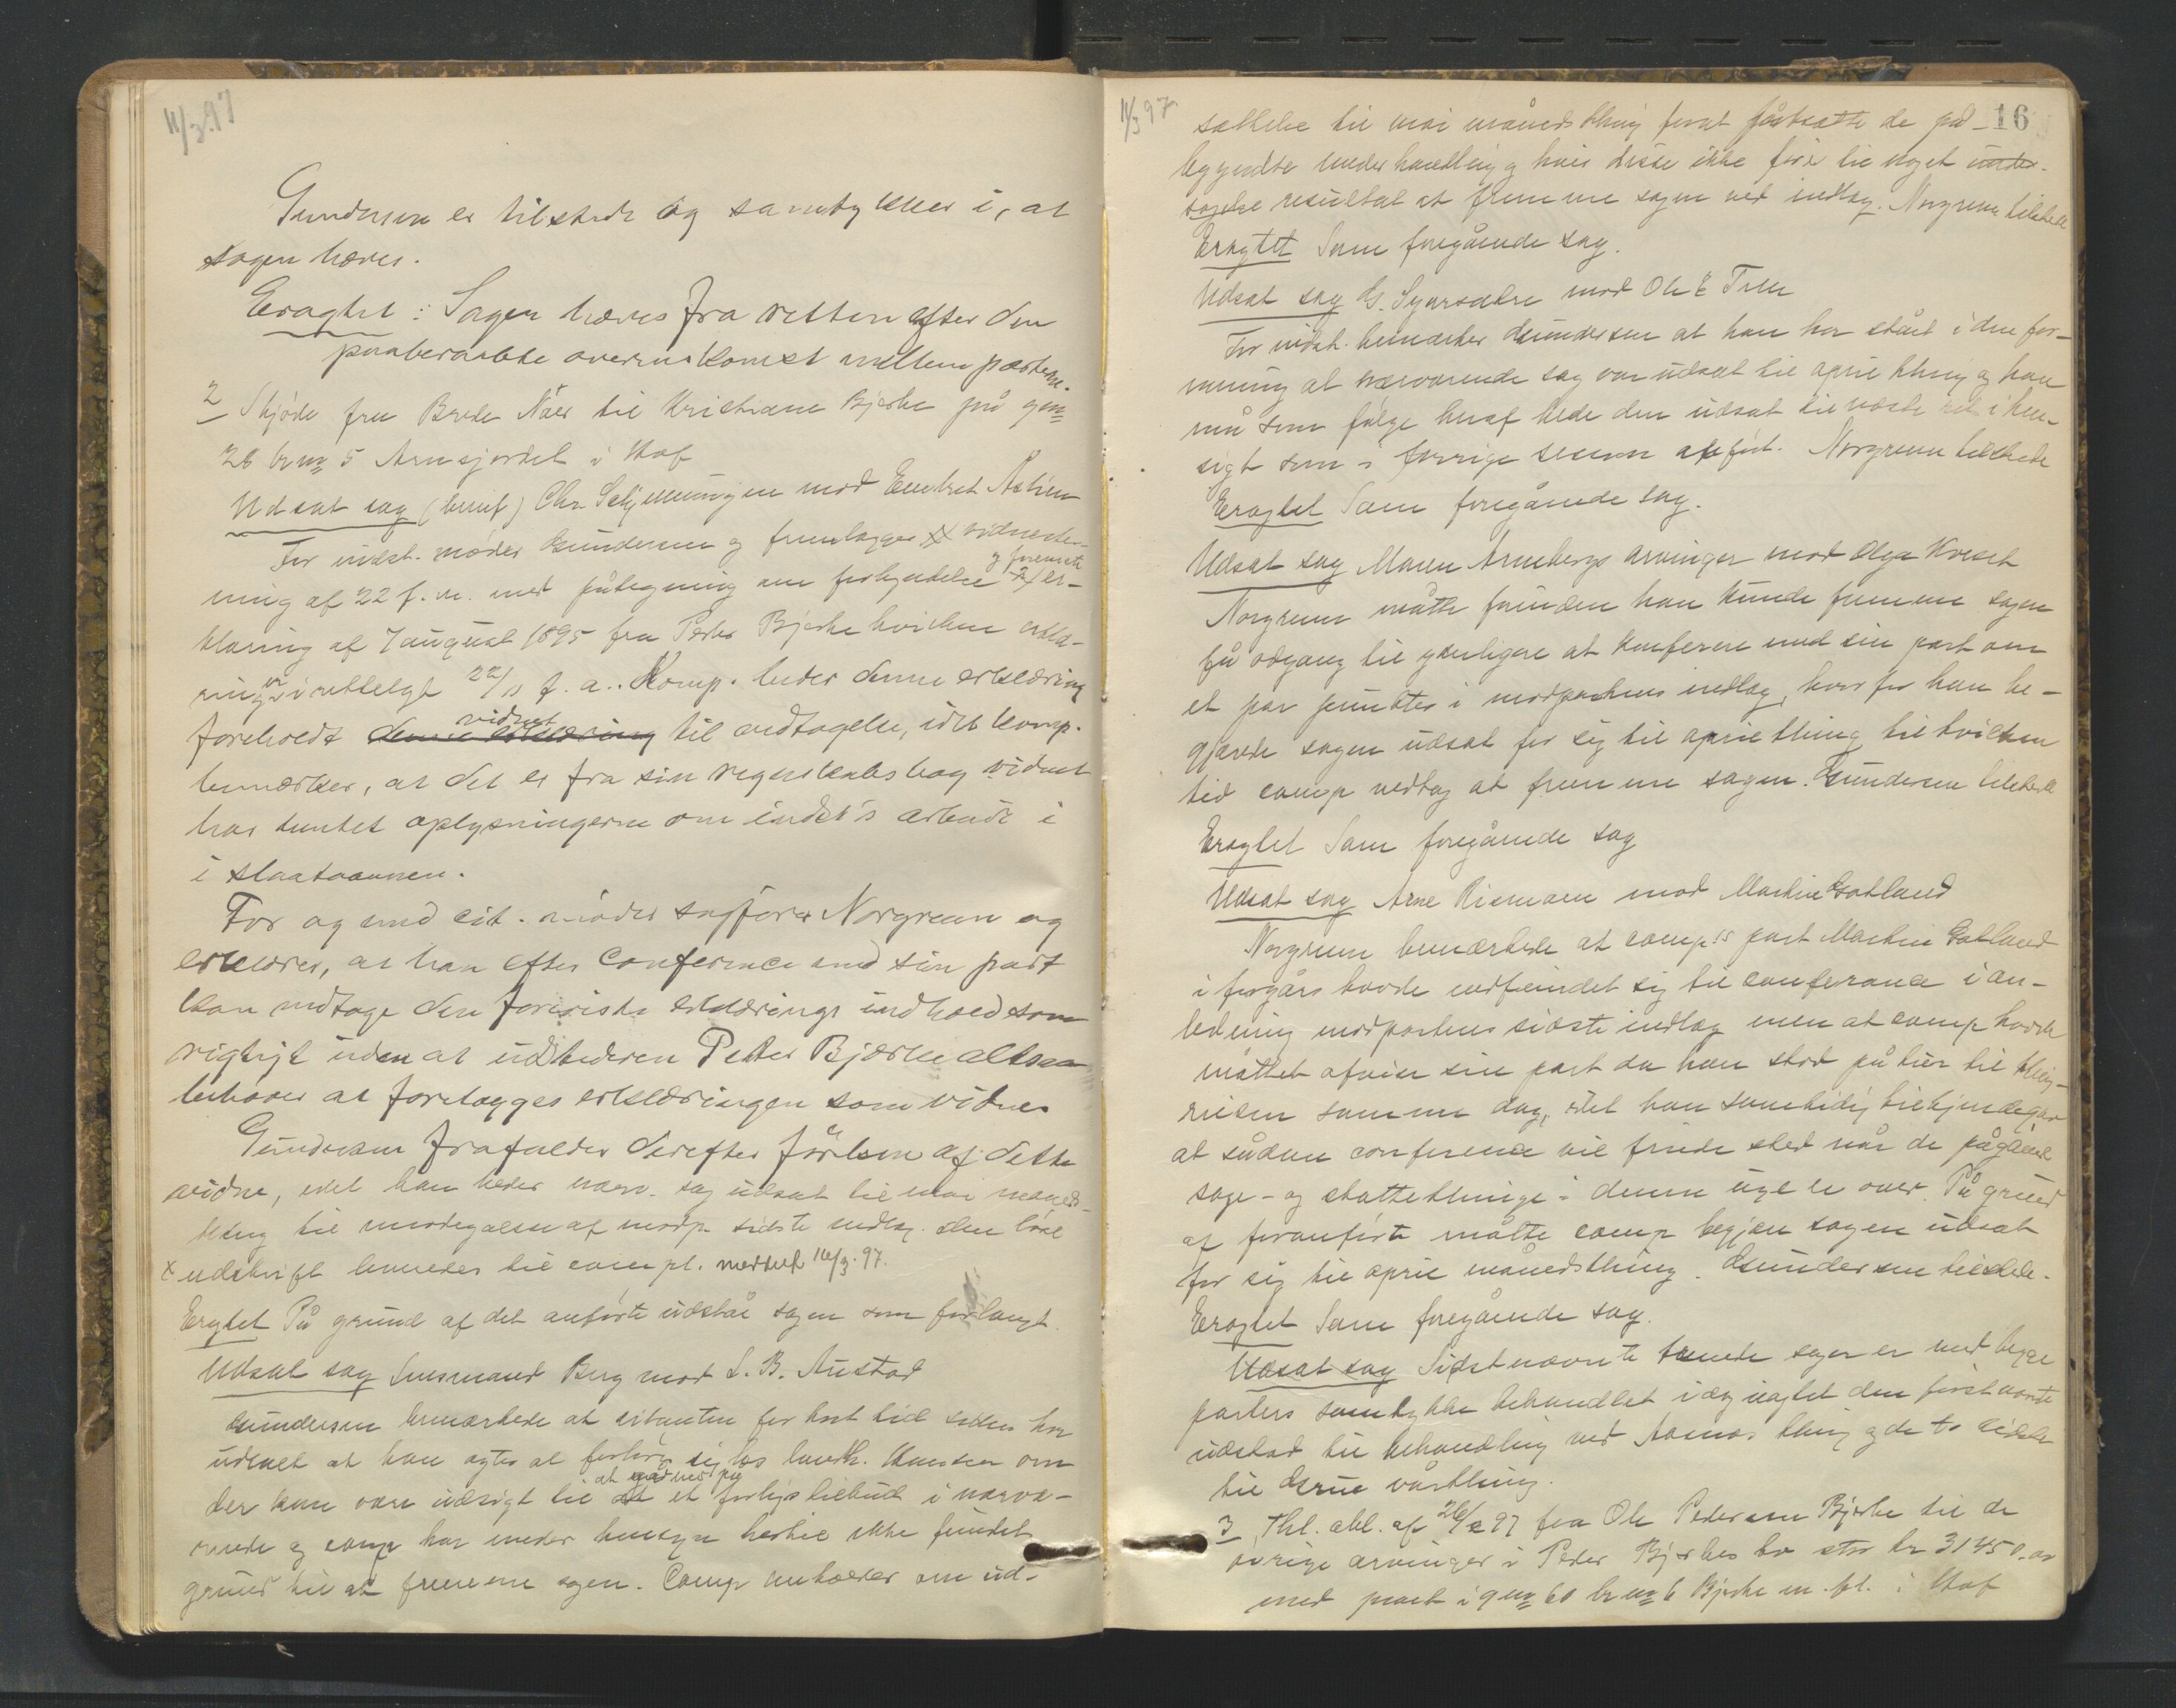 11/3.97
Gundersen er tilstede og samtykker i, at
sagen hæves.
Eragtet: Sagen hæves fra retten efter den
paaberaabte overenskomst mellem parterne.
2 Skjøde fra Brede Næs til Kristiane Bjerke på gnr
26 brnr 5 Arnesjordet i Hof
Udsat sag (benif) Chr. Schjenningen mod Embret Åslien
For indst. møder Gundersen og fremlægger vidnester-
ning af 22 f. m. med påtegning om forkyndelse og foreviste er-
klæring af 7 august 1895 fra Peder Bjerke hvilken erklæ-
ring er irettelagt 22/11 f. a. Komp. beder denne erklæring
foreholdt denne erklæring vidnet til vedtagelse, idet komp.
bemærker, at det er fra sin regnskabsbog vidnet
har hentet oplysningerne om indst's arbeide i
i slaataannen.
For og med cit. møder sagfører Norgreen og
erklærer, at han efter conference med sin part
kan vedtage den foreviste erklærings indhold som
rigtigt uden at udstederen Peder Bjerke altsaa
behøver at forelægges erklæringen som vidne.
Gundersen frafalder derefter førelsen af dette
vidne, idet han beder nærv. sag udsat til mai måneds-
thing til imødegåelse af modp. sidste indlæg. Den løse
x udskrift leveredes til compl. meddelt 16/3.97.
Eragtet På grund af det anførte udstår sagen som forlangt.
Udsat sag Lensmand Berg mod L. B. Austad
Gundersen bemærkede at citanten for kort tid siden har
udtalt at han agter at forhøre sig hos landh. Hansen om
der kan være udsigt til at gå med på et forligstilbud i nærvæ-
rende og comp har under hensyn hertil ikke fundet
grund til at fremme sagen. Comp anholder om ud-
11/3 97
16
sættelse til mai månedsthing forat fortsætte de på-
begyndte underhandling og hvis disse ikke fører til noget under-
søgelse resultat at fremme sagen ved indlæg. Norgreen tilstede
Eragtet Som foregående sag.
Udsat sag G. Sparsætre mod Ole E Trøen
For indst. bemærker Gundersen at han har stået i den for-
mening at nærværende sag var udsat til april thing og han
må som følge heraf bede den udsat til næste ret i hen-
sigt som i forrige session anført. Norgreen tilstede
Eragtet Som foregående sag.
Udsat sag Maren Arnebergs arvinger mod Olga Kveset
Norgreen måtte forinden han kunde fremme sagen
få adgang til yderligere at konferere med sin part om
et par punkter i modpartens indlæg, hvorfor han be-
gjærede sagen udsat for sig til april thing til hvilken
tid comp vedtog at fremme sagen. Gundersen tilstede
Eragtet Som foregående sag
Udsat sag Arne Rismoen mod Martin Gotland
Norgreen bemærkede at comp's part Martin Gotland
i forgårs havde indfundet sig til conferance i an-
ledning modpartens sidste indlæg men at comp havde
måttet afvise sin part da han stod på tur til thing-
reisen samme dag, idet han samtidig tilkjendegav
at sådan conference vil finde sted når de pågående
sage- og skattethinge i denne uge er over. På grund
af foranførte måtte comp begjære sagen udsat
for sig til april månedsthing. Gundersen tilstede.
Eragtet Som foregående sag.
Udsat sag Sidstnævnte tvende sager er med begge
parters samtykke behandlet i dag uagtet den førstnævnte
udstod til behandling ved Aasnes thing og de to sidste
til Grue vårthing.
3 Thl. obl. af 26/2 97 fra Ole Pedersen Bjerke til de
øvrige arvinger i Peder Bjerkes bo stor kr 31450.00
med pant i gnr 60 brnr 6 Bjerke m. fl. i Hof